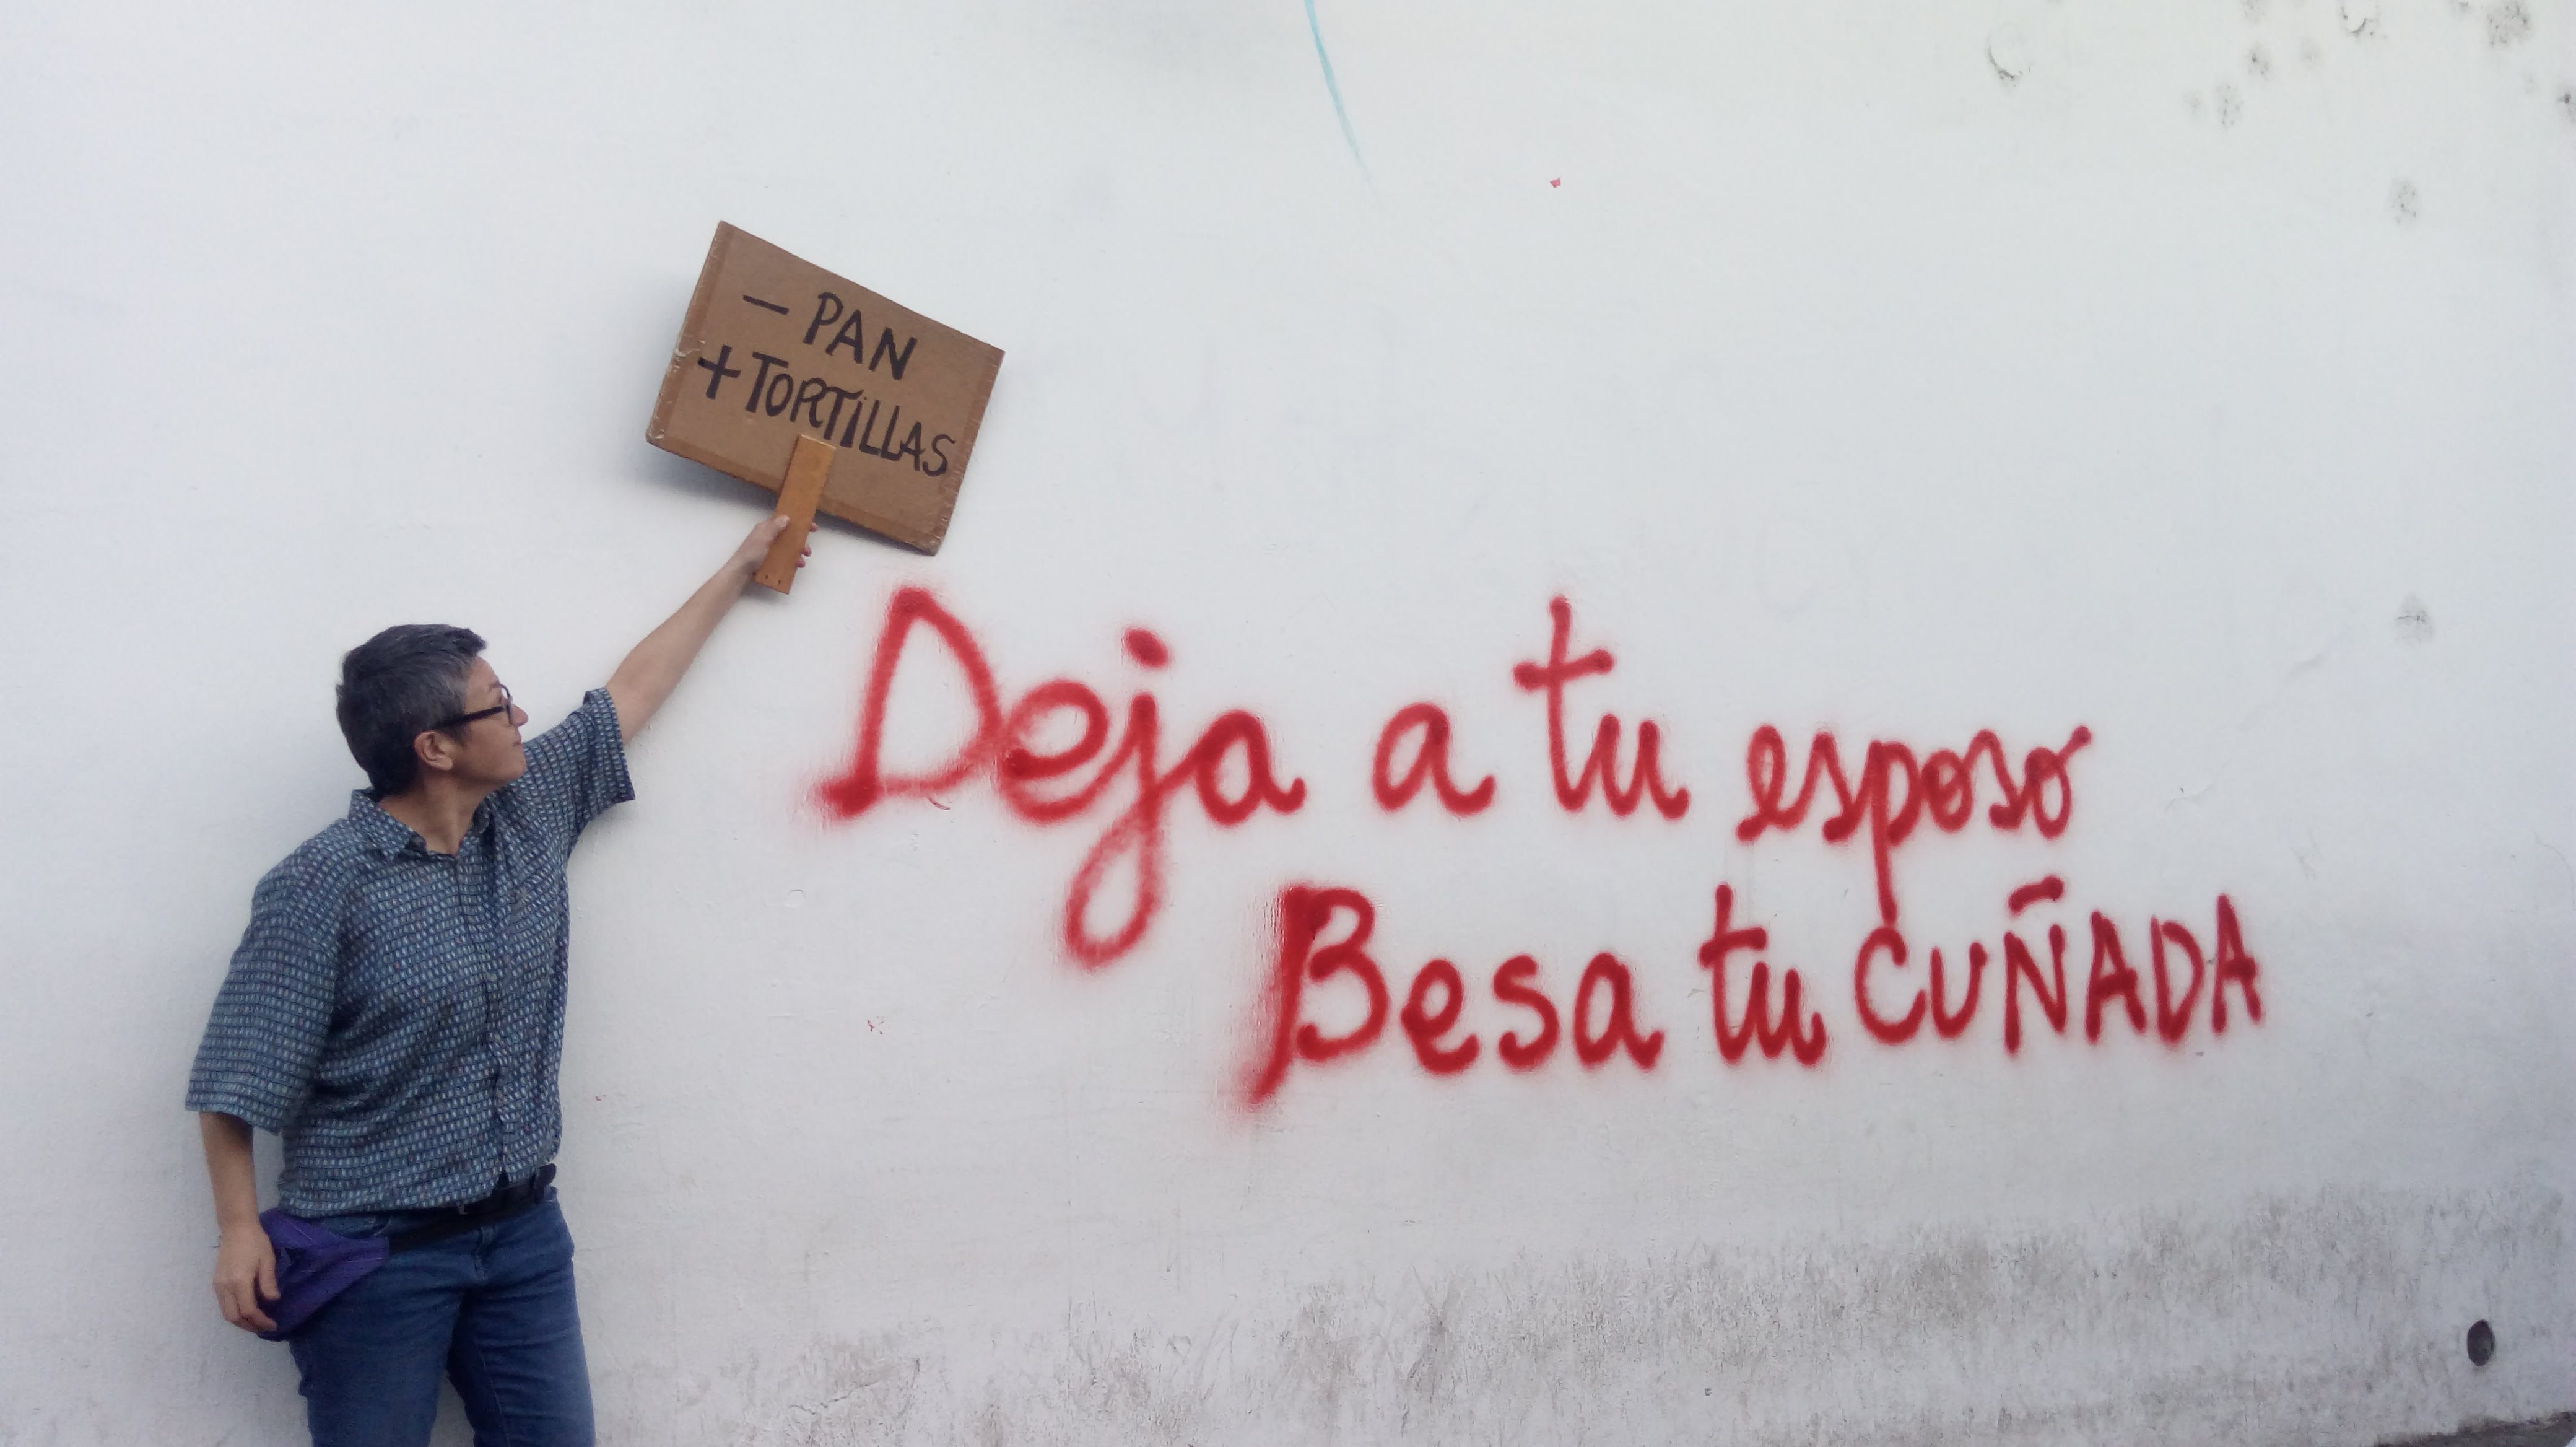 - PAN
+ TORTILLAS
Deja a tu esposo
Besa tu CUÑADA